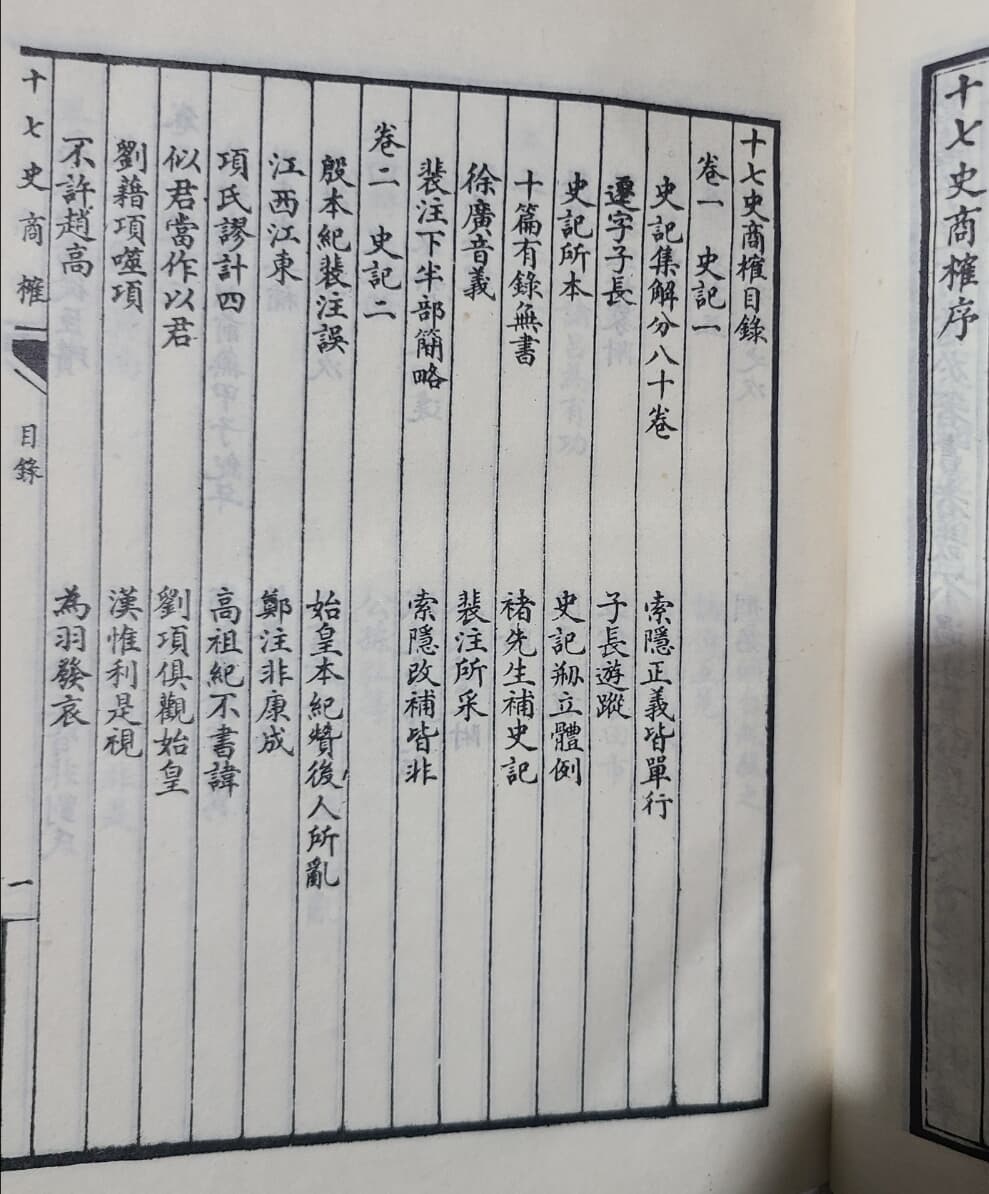 十七史商榷序
十七史商榷目錄
卷一 史記一
史記集解分八十卷 索隱正義皆單行
遷字子長 子長遊蹤
史記所本 史記刱立體例
十篇有錄無書 褚先生補史記
徐廣音義 裴注所采
裴注下半部簡略 索隱改補皆非
卷二 史記二
殷本紀裴注誤 始皇本紀贊後人所亂
江西江東 鄭注非康成
項氏謬計四 高祖紀不書諱
似君當作以君 劉項俱觀始皇
劉藉項噬項 漢惟利是視
不許趙高 為羽發哀
十七史商榷 目錄 一